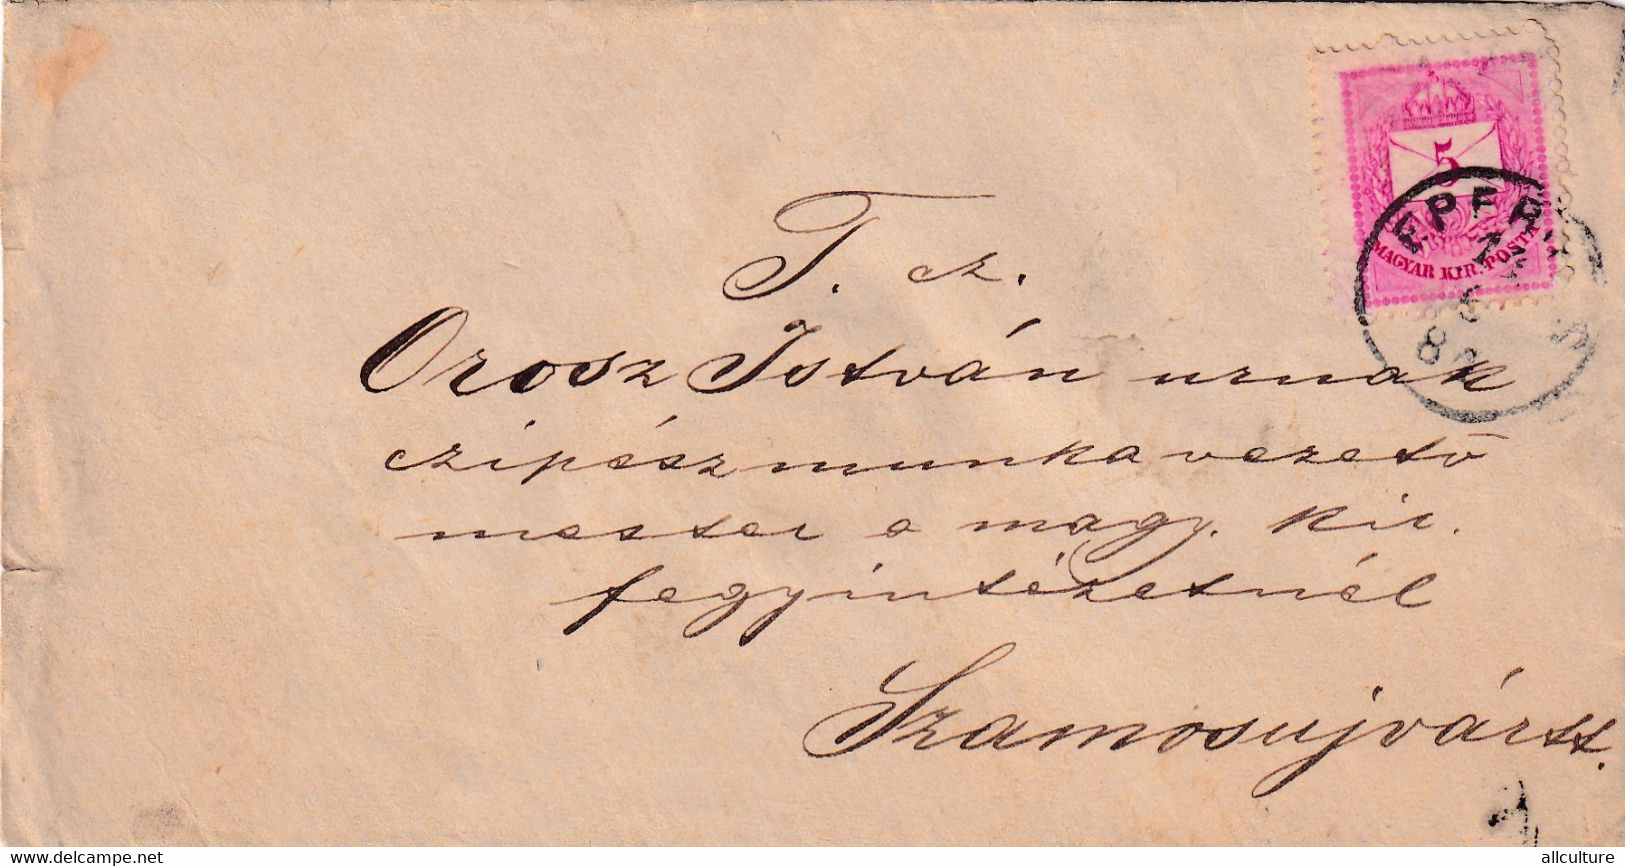 5
MAGYAR KIR. POSTA
EPER
T. cz.
Orosz István urnak
czipész munkavezető
mester a magy. kir.
fegyintézetnél
Szamosujvártt.
www.delcampe.net
allculture